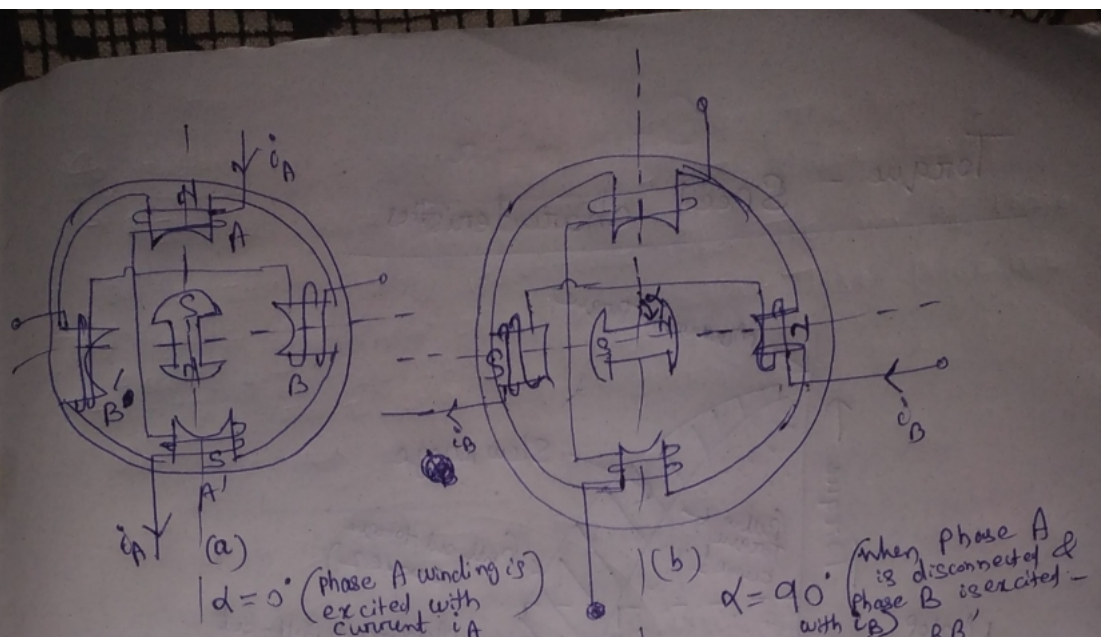 iA
N
A
S
N
B
B'
S
A'
iA
(a)
α = 0° (phase A winding is
excited with
current iA
S
S
iB
iB
(b)
α = 90° (when phase A
is disconnected &
phase B is excited
with iB)
BB'